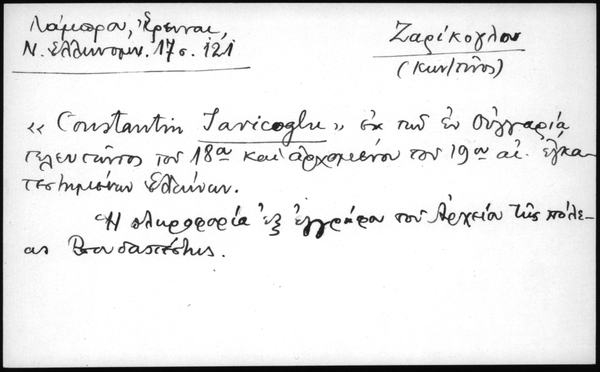 Λάμπρου, Ἔρευναι,
Ν. Ελληνομν. 17 σ. 121
Ζαρίκογλου
(Κων/τῖνος)
« Constantin Saricoglu » ἐκ τῶν ἐν Οὑγγαρίᾳ
τελευτῶντος τοῦ 18ου καὶ ἀρχομένου τοῦ 19ου αἰ. ἐγκα-
τεστημένων Ἑλλήνων.
Ἡ πληροφορία ἐξ ἐγγράφου τοῦ Ἀρχείου τῆς πόλε-
ως Βουδαπέστης.